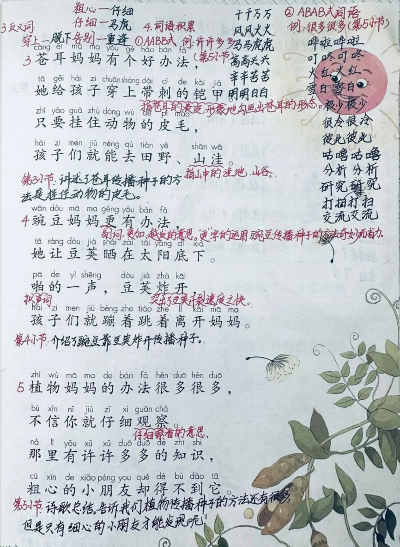 粗心—仔细
仔细—马虎
3.反义词
穿上—脱下 告别—重逢
4.词语积累
①AABB式 例:许许多多(第5小节)
千千万万
风风火火
马马虎虎
高高头头
辛辛苦苦
明明白白
②ABAB式词语
例:很多很多(第5小节)
哗啦哗啦
叮咚叮咚
火红火红
雪白雪白
极少极少
很冷很冷
咕噜咕噜
分析分析
研究研究
打扫打扫
交流交流
cāng ěr mā ma yǒu gè hǎo bàn fǎ
3 苍耳妈妈有个好办法,(第5小节)
tā gěi hái zi chuān shàng dài cì de kǎi jiǎ
她给孩子穿上带刺的铠甲。
指苍耳的表皮,形象地写出苍耳的形态。
zhǐ yào guà zhù dòng wù de pí máo
只要挂住动物的皮毛,
hái zi men jiù néng qù tián yě shān wā
孩子们就能去田野、山洼。
指山中的洼地,山谷。
第3小节:讲述了苍耳传播种子的方
法是挂住动物的皮毛。
wān dòu mā ma gèng yǒu bàn fǎ
4 豌豆妈妈更有办法,
tā ràng dòu jiá shài zài tài yáng dǐ xià
她让豆荚晒在太阳底下。
pā de yì shēng dòu jiá zhà kāi
啪的一声,豆荚炸开,
拟声词
突出了豆荚干裂速度之快。
hái zi men jiù bèng zhe tiào zhe lí kāi mā ma
孩子们就蹦着跳着离开妈妈。
第4小节:介绍了豌豆靠豆荚炸开传播种子。
zhí wù mā ma de bàn fǎ hěn duō hěn duō
5 植物妈妈的办法很多很多,
bú xìn nǐ jiù zǐ xì guān chá
不信你就仔细观察。
仔细察看的意思。
nà lǐ yǒu xǔ xǔ duō duō de zhī shi
那里有许许多多的知识,
cū xīn de xiǎo péng you què dé bú dào tā
粗心的小朋友却得不到它。
第5小节:诗歌总结,告诉我们植物传播种子方法还有很多,
但是只有细心的小朋友才能发现呢!